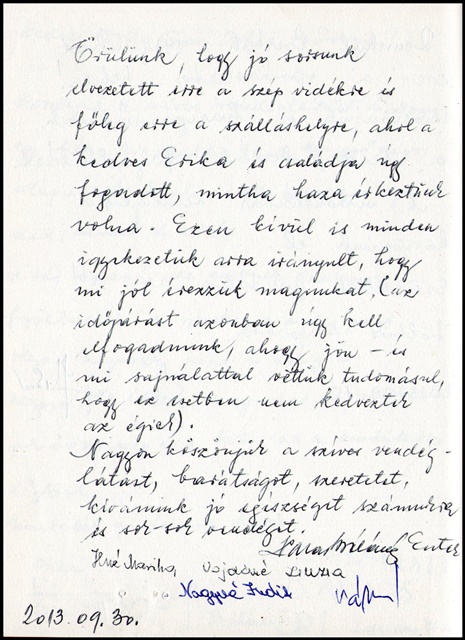 Örülünk, hogy jó sorsunk
elvezetett erre a szép vidékre és
főleg erre a szálláshelyre, ahol a
kedves Erika és családja úgy
fogadott, mintha haza érkeztünk
volna. Ezen kívül is minden
igyekezetük arra irányult, hogy
mi jól érezzük magunkat, (az
időjárást azonban úgy kell
elfogadnunk, ahogy jön – és
mi sajnálattal vettük tudomásul,
hogy ez esetben nem kedveztek
az égiek).
Nagyon köszönjük a szíves vendég-
látást, barátságot, szeretetet,
kívánunk jó egészséget számukra
és sok-sok vendéget.
Eszter
Marika,
Nagyné Judit
2013.09.30.